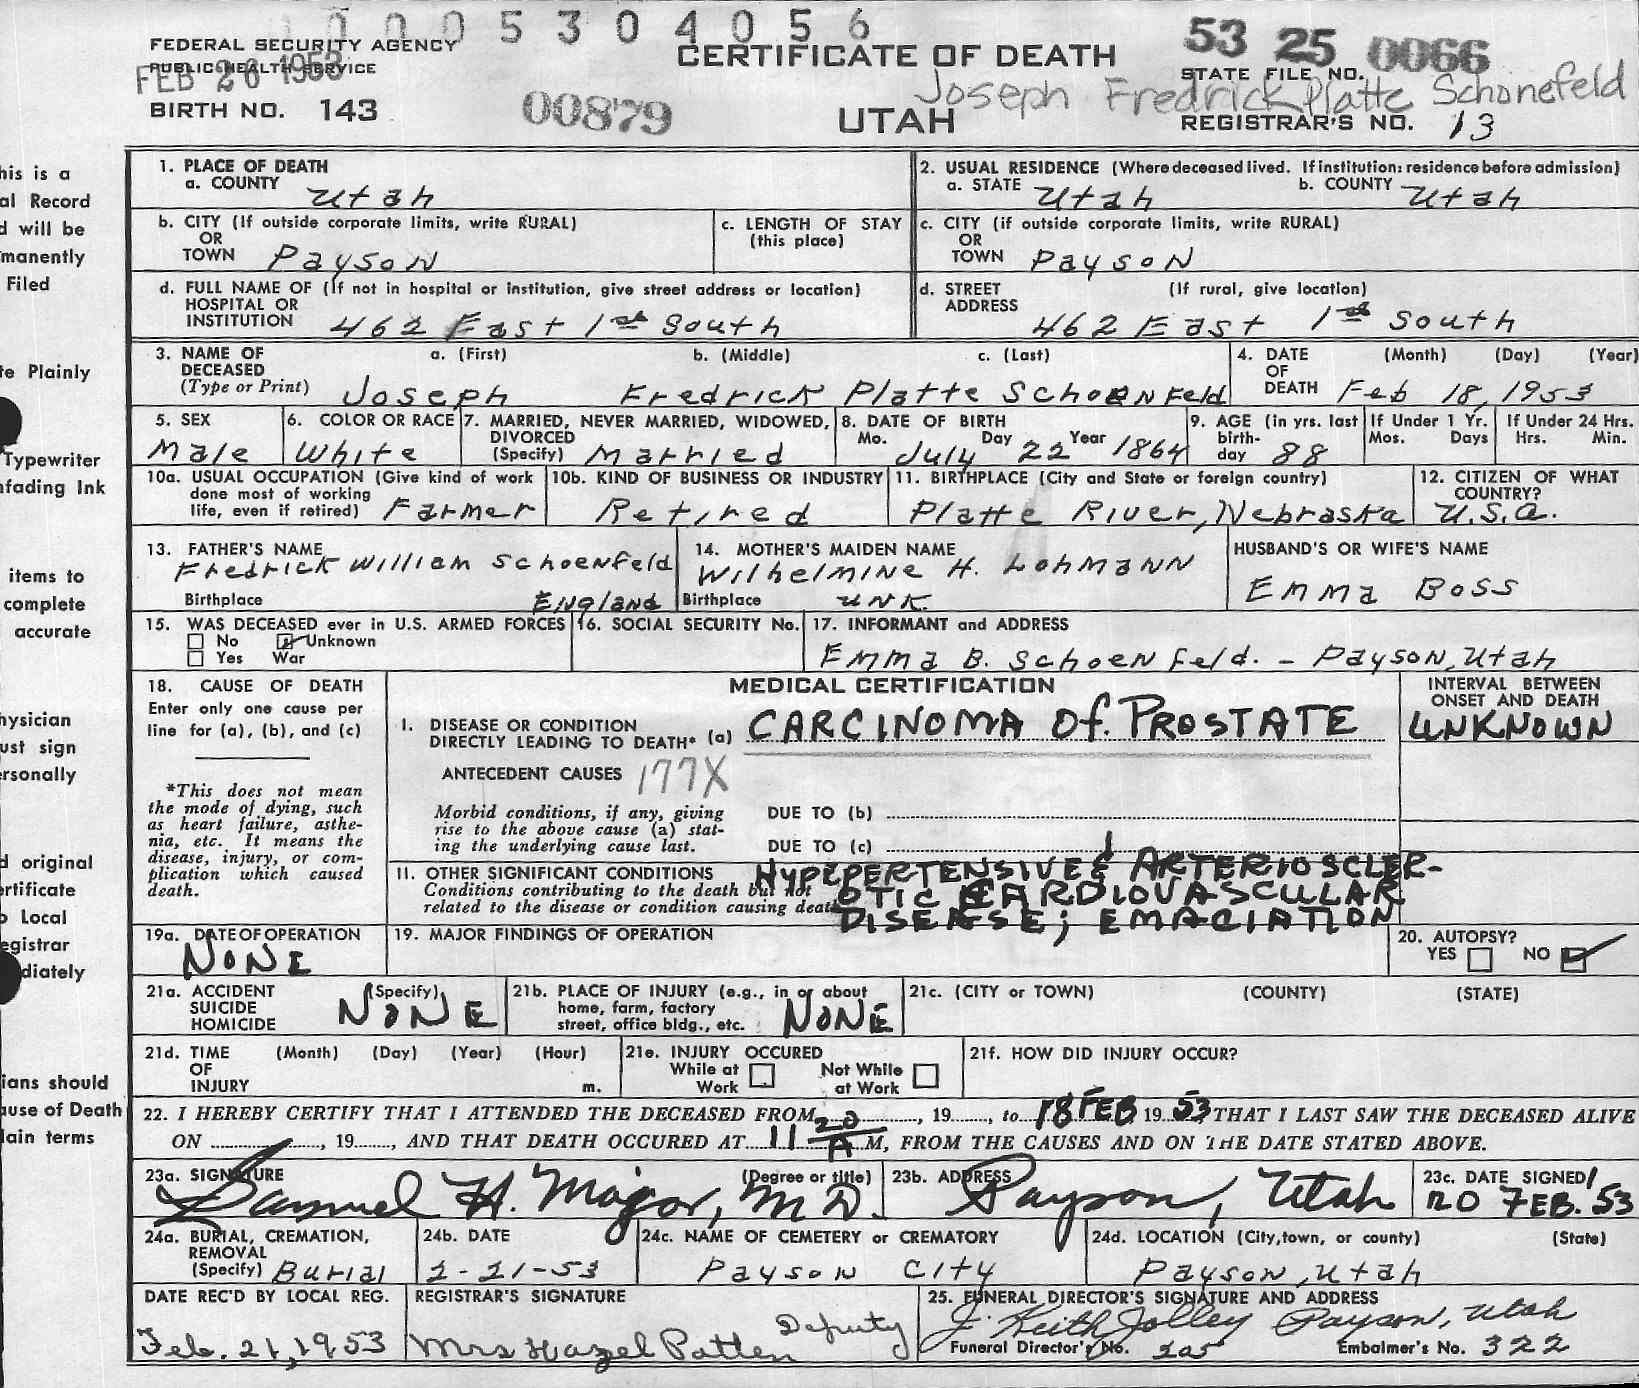 10005304056
FEDERAL SECURITY AGENCY
PUBLIC HEALTH SERVICE
FEB 26 1953
BIRTH NO. 143
00879
CERTIFICATE OF DEATH
UTAH
53 25 0066
STATE FILE NO.
Joseph Fredrick Platte Schonefeld
REGISTRAR'S NO. 13
his is a
al Record
d will be
manently
Filed
te Plainly
Typewriter
nfading Ink
items to
complete
accurate
hysician
ust sign
ersonally
d original
ertificate
o Local
egistrar
diately
ians should
ause of Death
lain terms
1. PLACE OF DEATH
a. COUNTY Utah
2. USUAL RESIDENCE (Where deceased lived. If institution: residence before admission)
a. STATE Utah b. COUNTY Utah
b. CITY (If outside corporate limits, write RURAL)
OR
TOWN Payson
c. LENGTH OF STAY
(this place)
c. CITY (if outside corporate limits, write RURAL)
OR
TOWN Payson
d. FULL NAME OF (If not in hospital or institution, give street address or location)
HOSPITAL OR
INSTITUTION 462 East 1st South
d. STREET (If rural, give location)
ADDRESS 462 East 1st South
3. NAME OF a. (First) b. (Middle) c. (Last)
DECEASED
(Type or Print) Joseph Fredrick Platte Schoenfeld
4. DATE (Month) (Day) (Year)
OF
DEATH Feb 18, 1953
5. SEX
Male
6. COLOR OR RACE
White
7. MARRIED, NEVER MARRIED, WIDOWED,
DIVORCED
(Specify) Married
8. DATE OF BIRTH
Mo. Day Year
July 22 1864
9. AGE (in yrs. last
birth-
day 88
If Under 1 Yr.
Mos. Days
If Under 24 Hrs.
Hrs. Min.
10a. USUAL OCCUPATION (Give kind of work
done most of working
life, even if retired) Farmer
10b. KIND OF BUSINESS OR INDUSTRY
Retired
11. BIRTHPLACE (City and State or foreign country)
Platte River, Nebraska
12. CITIZEN OF WHAT
COUNTRY?
U.S.A.
13. FATHER'S NAME
Fredrick William Schoenfeld
Birthplace England
14. MOTHER'S MAIDEN NAME
Wilhelmine H. Lohmann
Birthplace UNK.
HUSBAND'S OR WIFE'S NAME
Emma Boss
15. WAS DECEASED ever in U.S. ARMED FORCES
No Unknown
Yes War
16. SOCIAL SECURITY No.
17. INFORMANT and ADDRESS
Emma B. Schoenfeld. - Payson, Utah
18. CAUSE OF DEATH
Enter only one cause per
line for (a), (b), and (c)
*This does not mean
the mode of dying, such
as heart failure, asthe-
nia, etc. It means the
disease, injury, or com-
plication which caused
death.
MEDICAL CERTIFICATION
INTERVAL BETWEEN
ONSET AND DEATH
UNKNOWN
I. DISEASE OR CONDITION
DIRECTLY LEADING TO DEATH* (a) CARCINOMA Of. PROSTATE
ANTECEDENT CAUSES 177X
Morbid conditions, if any, giving
rise to the above cause (a) stat-
ing the underlying cause last.
DUE TO (b)
DUE TO (c)
11. OTHER SIGNIFICANT CONDITIONS
Conditions contributing to the death but not
related to the disease or condition causing death
HYPERTENSIVE & ARTERIOSCLER-
OTIC CARDIOVASCULAR
DISEASE; EMACIATION
19a. DATE OF OPERATION
NONE
19. MAJOR FINDINGS OF OPERATION
20. AUTOPSY?
YES NO
21a. ACCIDENT (Specify)
SUICIDE
HOMICIDE NONE
21b. PLACE OF INJURY (e.g., in or about
home, farm, factory
street, office bldg., etc. NONE
21c. (CITY or TOWN) (COUNTY) (STATE)
21d. TIME (Month) (Day) (Year) (Hour)
OF
INJURY m.
21e. INJURY OCCURED
While at Work Not While at Work
21f. HOW DID INJURY OCCUR?
22. I HEREBY CERTIFY THAT I ATTENDED THE DECEASED FROM , 19 , to 18 FEB 19 53, THAT I LAST SAW THE DECEASED ALIVE
ON , 19 , AND THAT DEATH OCCURED AT 11 20 A M, FROM THE CAUSES AND ON THE DATE STATED ABOVE.
23a. SIGNATURE (Degree or title)
Samuel H. Major, M.D.
23b. ADDRESS
Payson, Utah
23c. DATE SIGNED
20 FEB. 53
24a. BURIAL, CREMATION,
REMOVAL
(Specify) Burial
24b. DATE
2-21-53
24c. NAME OF CEMETERY or CREMATORY
Payson City
24d. LOCATION (City, town, or county) (State)
Payson, Utah
DATE REC'D BY LOCAL REG.
Feb. 21, 1953
REGISTRAR'S SIGNATURE
Mrs Hazel Patten Deputy
25. FUNERAL DIRECTOR'S SIGNATURE AND ADDRESS
J. Keith Jolley Payson, Utah
Funeral Director's No. 205 Embalmer's No. 322